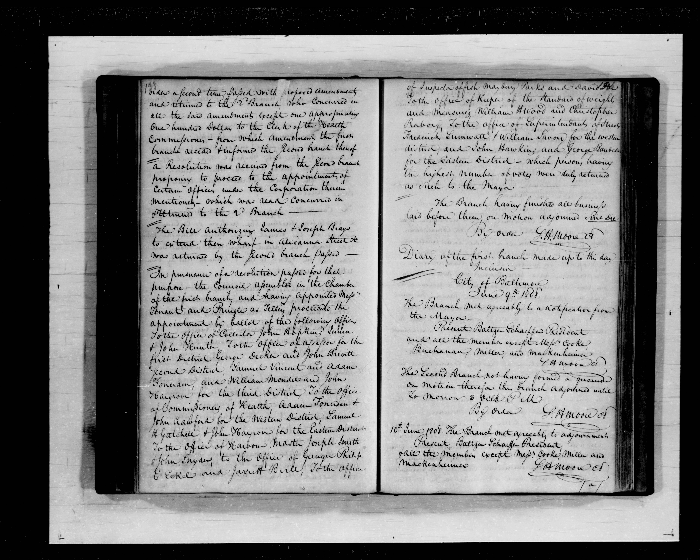 under a second time passed with proposed amendments
and returned to the 2d Branch who concurred in
all the said amendments except one appropriating
one hundred Dollars to the Clerk of the Health
Commissioners from which amendment the first
branch receded & informed the second branch thereof
A Resolution was received from the second branch
proposing to proceed to the appointment of
Certain officers under the Corporation therein
mentioned which was read concurred in
& returned to the 2d Branch
The Bill Authorizing James & Joseph Biays
to extend their wharf in Aliceanna Street &c
was returned by the second branch passed
In pursuance of a resolution passed for that
purpose the Council assembled in the Chamber
of the first branch and having appointed Messrs
and Pringle as Tellers proceeded to the
appointment by ballot of the following officers
To the office of Collector John Hopkins
& John Hunt To the office of Assessor for the
first District George Decker and John Brevitt
second District Samuel Vincent and Adam
Fonerden, and William and John
for the third District To the office
of Commissioners of Health, Adam Fonerden &
John Crawford for the Western District, Samuel
& John for the Eastern District
To the office of Harbour Master Joseph Smith
& John Snyder to the office of Gauger Philip
and To the office
of Inspector of fish and David
To the office of Keeper of the Standard of weights
and Measures William and Christopher
To the office of Superintendents of Streets
Frederick & William for the western
district, and John Hawkins and George
for the Eastern District which persons having
the highest number of votes were duly returned
as such to the Mayor
The Branch having finished all business
laid before them, on motion adjourned sine die
By order S. H. Moore Clk
Diary of the first branch made up to this day
Inclusive
City of Baltimore
June 9th 1808
The Branch met agreeably to a notification from
the Mayor
Present Baltzer Schaeffer President
and all the members except Messrs Cooke
Buchanan, Miller, and Mackenheimer
S. H. Moore Clk
The Second Branch not having formed a quorum
on motion therefore this branch adjourned until
to morrow 3 oClock P.M.
By Order S. H. Moore Clk
10th June 1808 The Branch met agreeably to adjournment
Present Baltzer Schaeffer President
and all the members except Messrs Cooke, Miller and
Mackenheimer S. H. Moore Clk